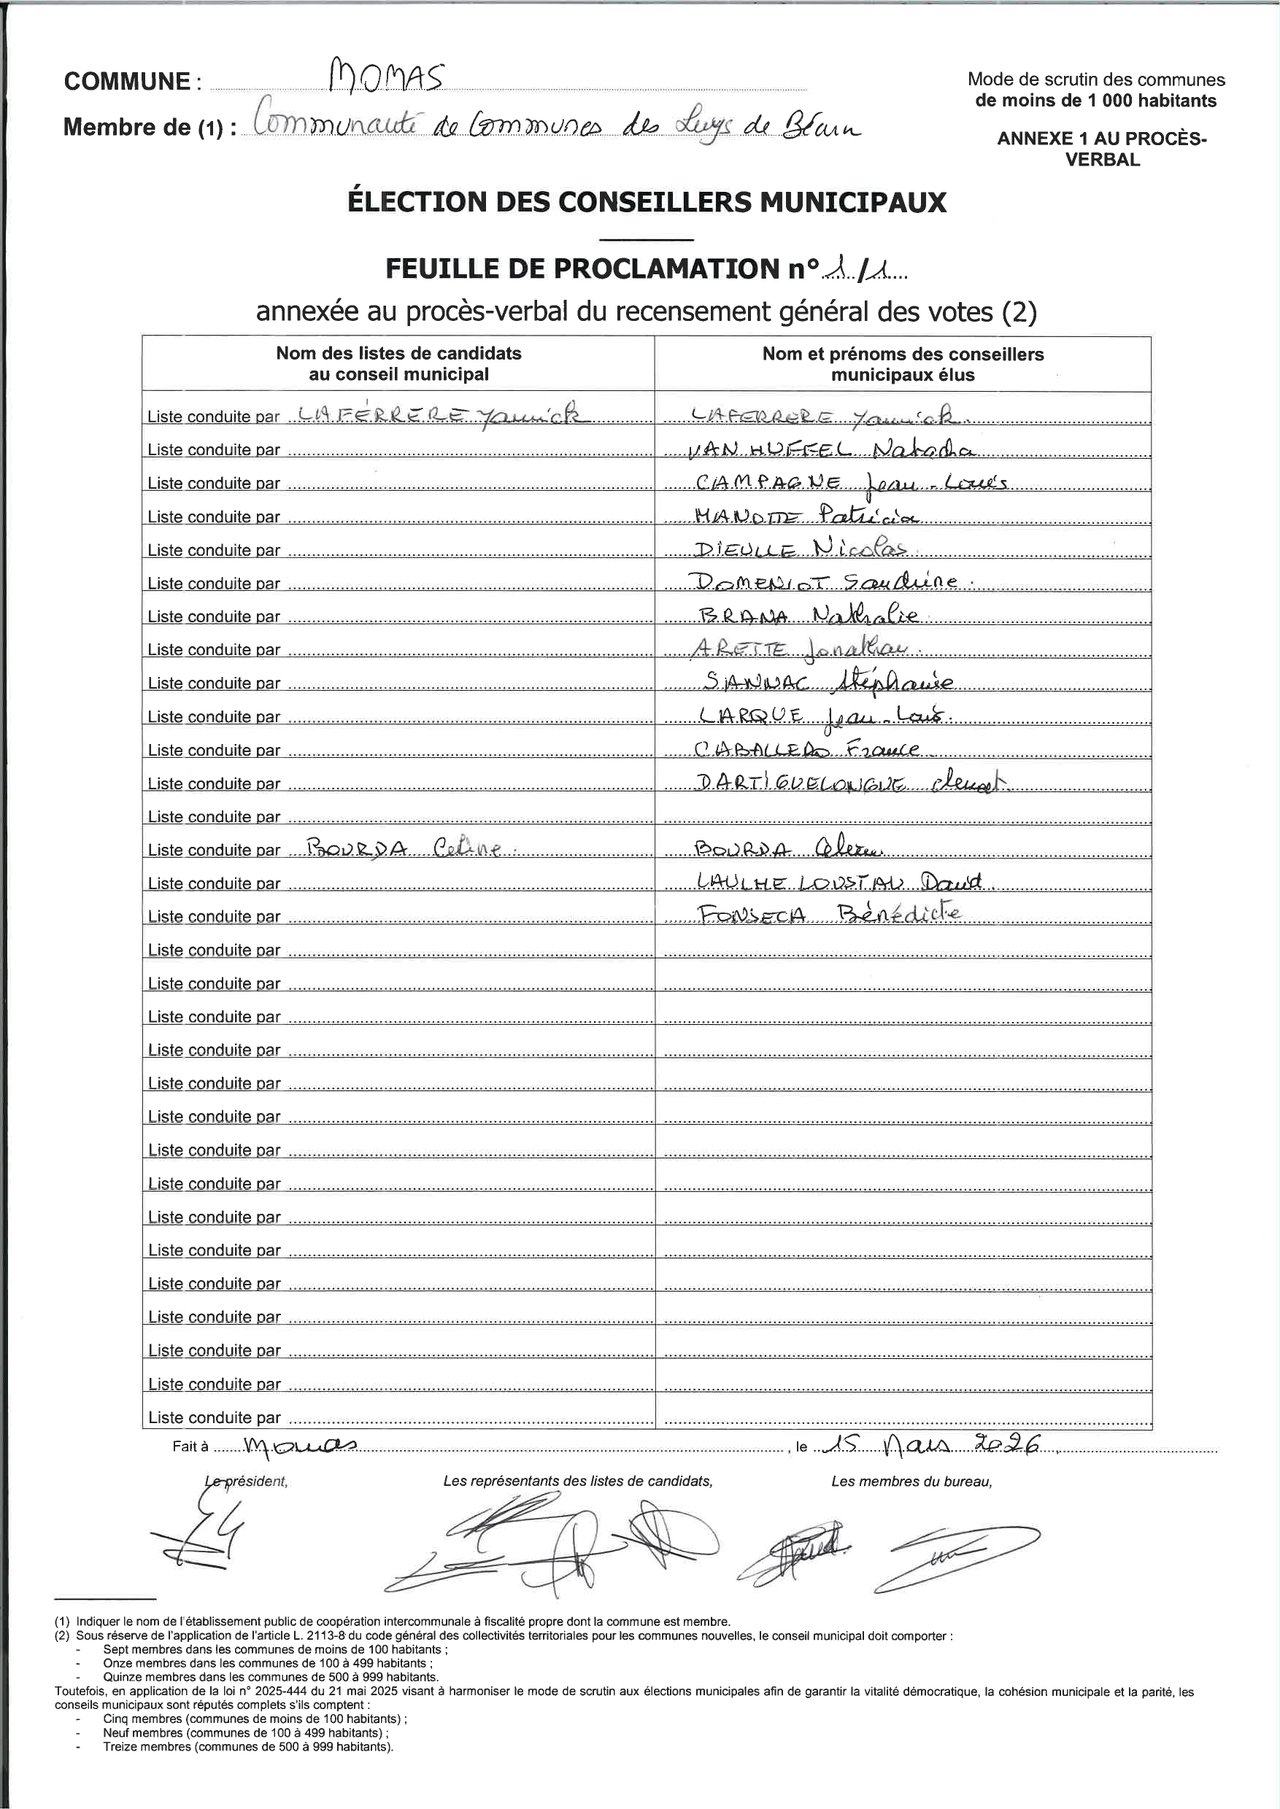 COMMUNE : MOMAS
Mode de scrutin des communes
de moins de 1 000 habitants
Membre de (1) : Communauté de Communes des Luys de Béarn
ANNEXE 1 AU PROCÈS-
VERBAL
ÉLECTION DES CONSEILLERS MUNICIPAUX
FEUILLE DE PROCLAMATION n° 1/1
annexée au procès-verbal du recensement général des votes (2)
Nom des listes de candidats
au conseil municipal
Nom et prénoms des conseillers
municipaux élus
Liste conduite par LAFÉRRERE Yannick LAFERRERE Yannick
Liste conduite par VAN HUFFEL Natacha
Liste conduite par CAMPAGNE Jean-Louis
Liste conduite par Patricia
Liste conduite par DIEULLE Nicolas
Liste conduite par DOMENJOT Sandrine
Liste conduite par BRANA Nathalie
Liste conduite par ARETTE Jonathan
Liste conduite par SANNAC Stéphanie
Liste conduite par LARQUE Jean-Louis
Liste conduite par CABALLERO France
Liste conduite par DARTIGUELONGUE Clément
Liste conduite par
Liste conduite par BOURDA Celine BOURDA Celine
Liste conduite par LAULHE LOUSTAU David
Liste conduite par FONSECA Bénédicte
Liste conduite par
Liste conduite par
Liste conduite par
Liste conduite par
Liste conduite par
Liste conduite par
Liste conduite par
Liste conduite par
Liste conduite par
Liste conduite par
Liste conduite par
Liste conduite par
Liste conduite par
Liste conduite par
Liste conduite par
Fait à Momas, le 15 Mars 2026
Le président, Les représentants des listes de candidats, Les membres du bureau,
(1) Indiquer le nom de l'établissement public de coopération intercommunale à fiscalité propre dont la commune est membre.
(2) Sous réserve de l'application de l'article L. 2113-8 du code général des collectivités territoriales pour les communes nouvelles, le conseil municipal doit comporter :
- Sept membres dans les communes de moins de 100 habitants ;
- Onze membres dans les communes de 100 à 499 habitants ;
- Quinze membres dans les communes de 500 à 999 habitants.
Toutefois, en application de la loi n° 2025-444 du 21 mai 2025 visant à harmoniser le mode de scrutin aux élections municipales afin de garantir la vitalité démocratique, la cohésion municipale et la parité, les
conseils municipaux sont réputés complets s'ils comptent :
- Cinq membres (communes de moins de 100 habitants) ;
- Neuf membres (communes de 100 à 499 habitants) ;
- Treize membres (communes de 500 à 999 habitants).